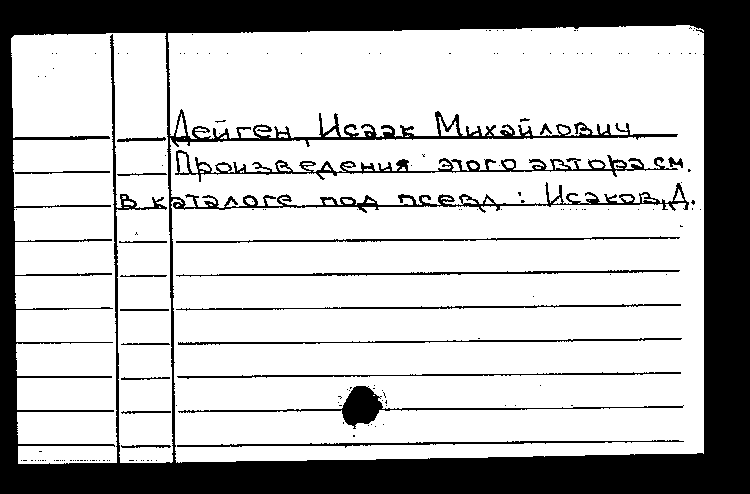 Дейген, Исаак Михайлович
Произведения этого автора см.
в каталоге под псевд.: Исаков, Д.